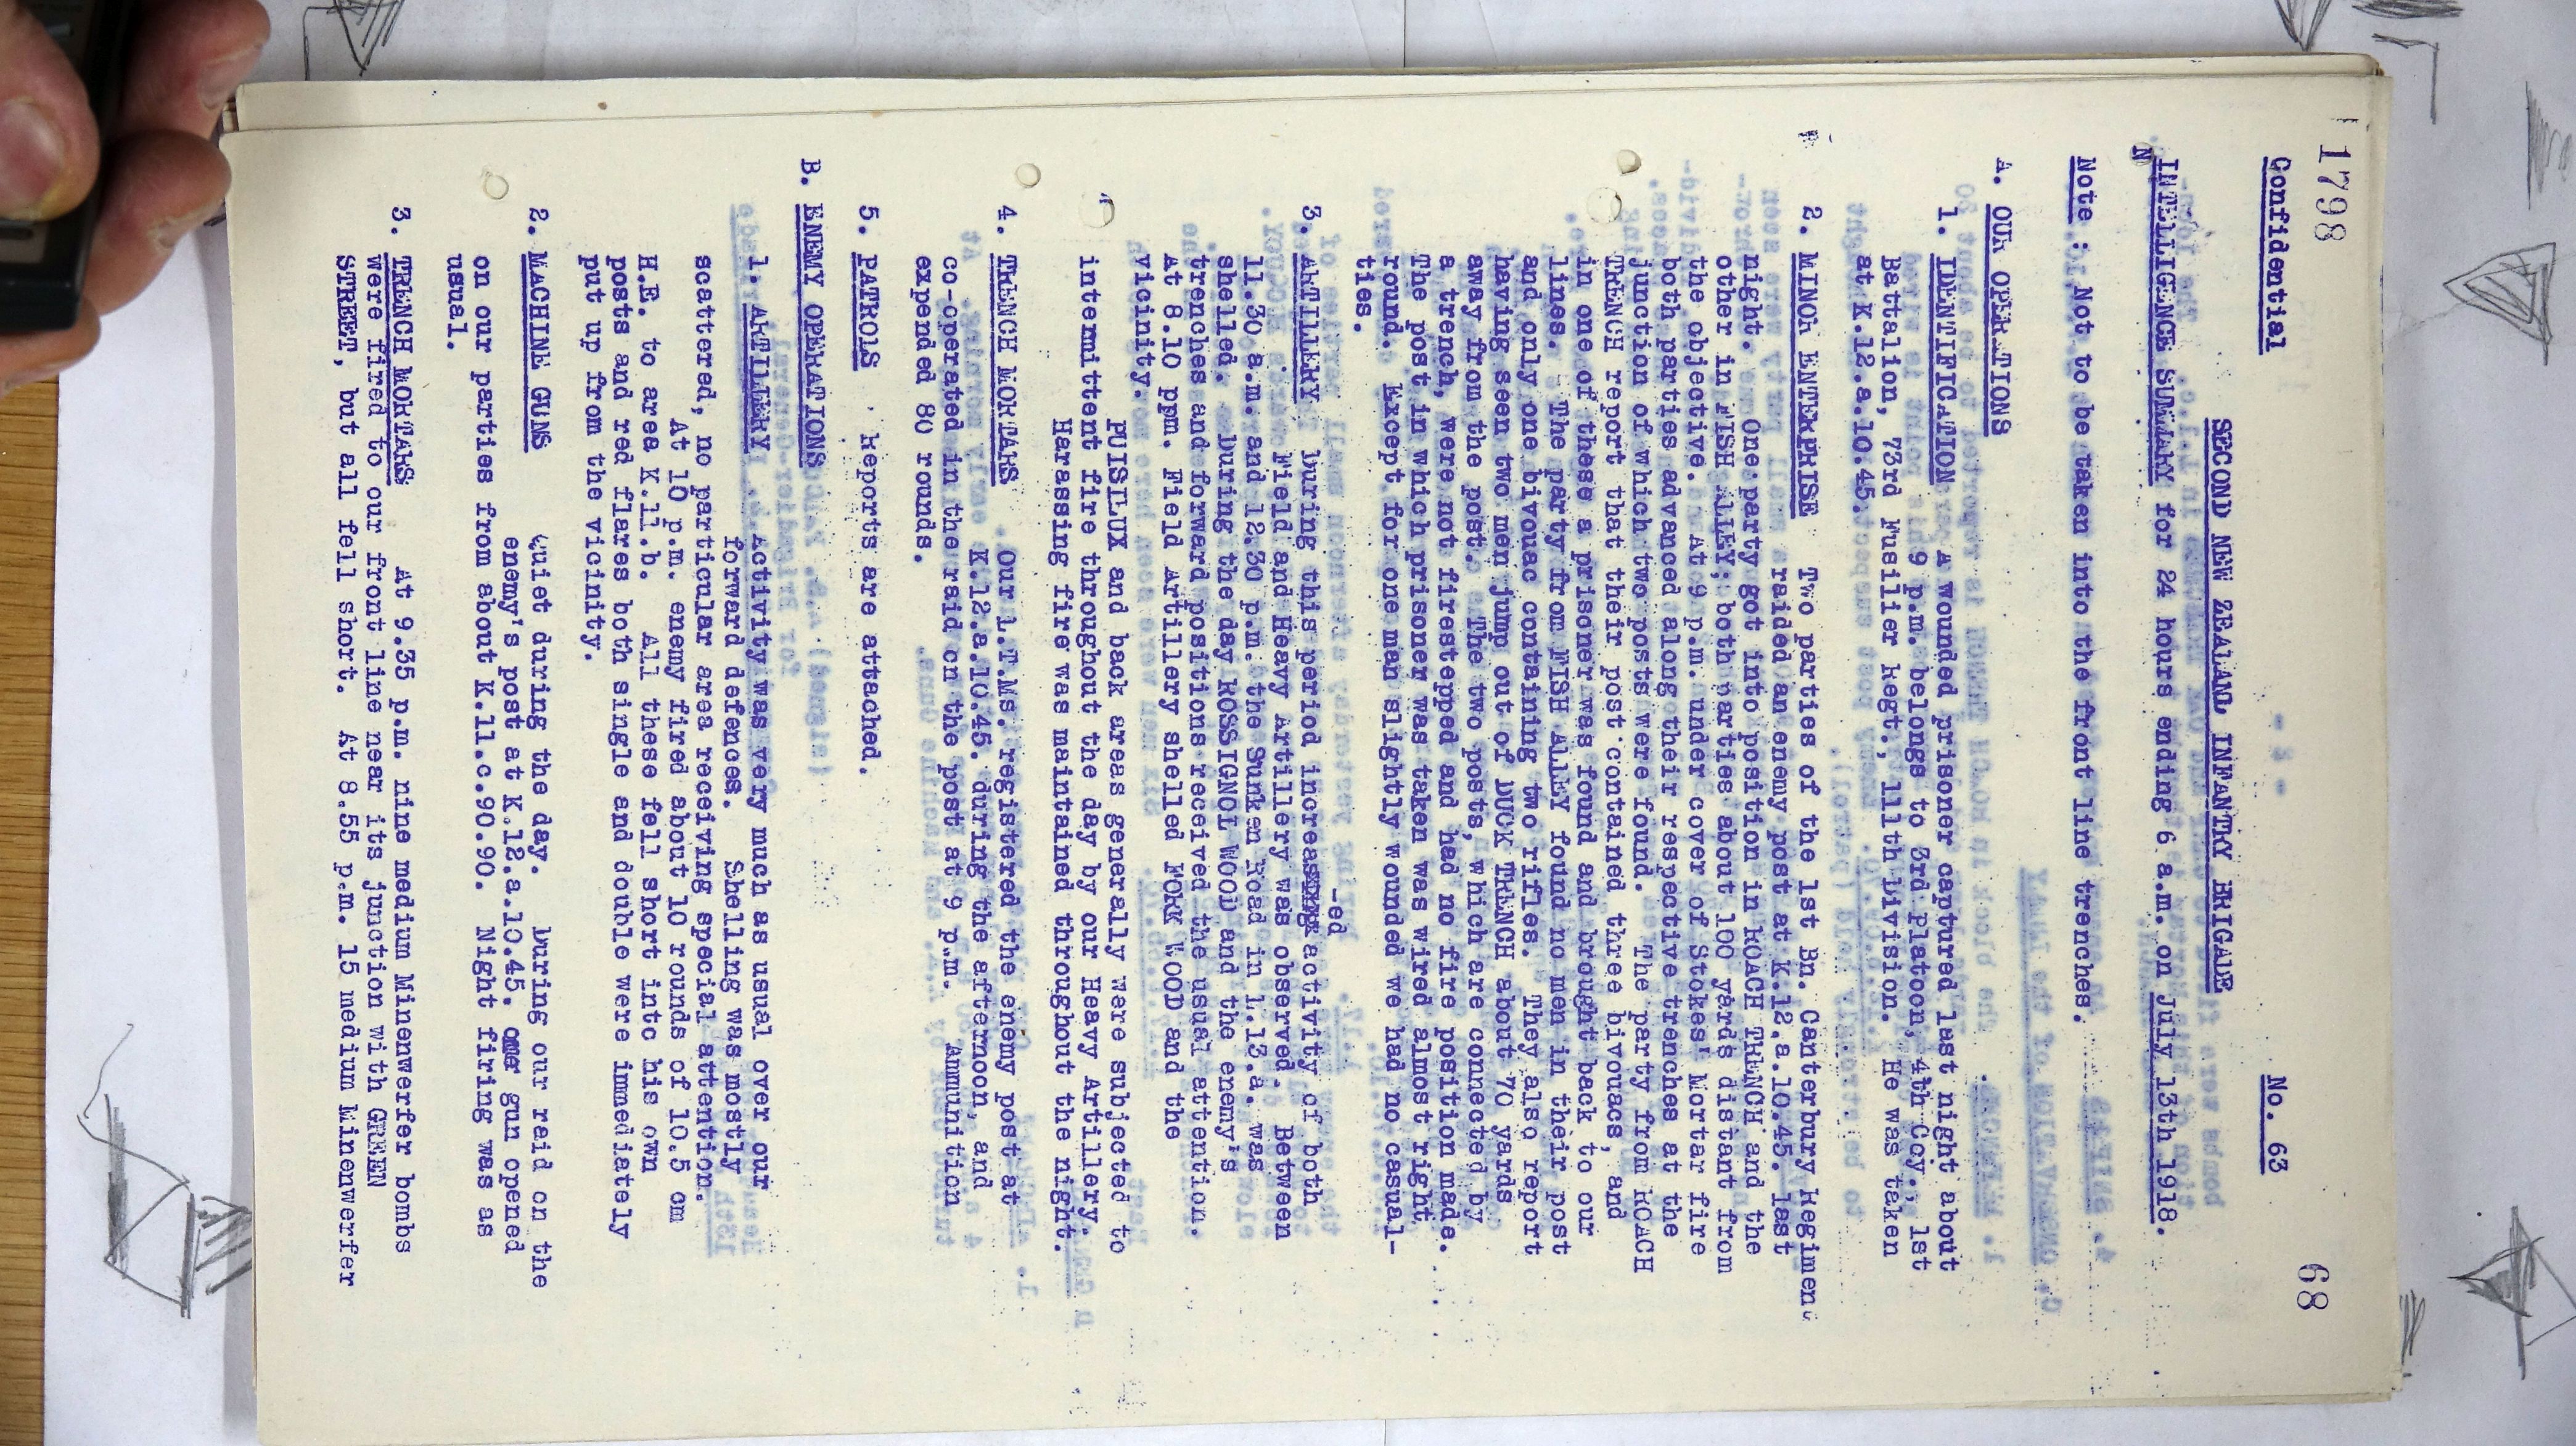 1798
68
Confidential
No. 63
SECOND NEW ZEALAND INFANTRY BRIGADE
INTELLIGENCE SUMMARY for 24 hours ending 6 a.m. on July 13th 1918.
N
Note : Not to be taken into the front line trenches.
A. OUR OPERATIONS
1. IDENTIFICATION A wounded prisoner captured last night about
9 p.m. belongs to 3rd platoon, 4th Coy., 1st
Battalion, 73rd Fusilier Regt., 111th Division. He was taken
at K.12.a.10.45.
2. MINOR ENTERPRISE Two parties of the 1st Bn. Canterbury Regiment
raided an enemy post at K.12.a.10.45. last
night. One party got into position in ROACH TRENCH and the
other in FISH ALLEY; both parties about 100 yards distant from
the objective. At 9 p.m. under cover of Stokes' Mortar fire
both parties advanced along their respective trenches at the
junction of which two posts were found. The party from ROACH
TRENCH report that their post contained three bivouacs, and
in one of these a prisoner was found and brought back to our
lines. The party from FISH ALLEY found no men in their post
and only one bivouac containing two rifles. They also report
having seen two men jump out of DUCK TRENCH about 70 yards
away from the post. The two posts, which are connected by
a trench, were not firestepped and had no fire position made.
The post in which prisoner was taken was wired almost right
round. Except for one man slightly wounded we had no casual-
ties.
-ed
3. ARTILLERY During this period increasing activity of both
Field and Heavy Artillery was observed. Between
11.30 a.m. and 12.30 p.m. the Sunken Road in L.13.a. was
shelled. During the day ROSSIGNOL WOOD and the enemy's
trenches and forward positions received the usual attention.
At 8.10 ppm. Field Artillery shelled FORK WOOD and the
vicinity.
PUISIEUX and back areas generally were subjected to
intermittent fire throughout the day by our Heavy Artillery.
Harassing fire was maintained throughout the night.
4. TRENCH MORTARS Our L.T.Ms. registered the enemy post at
K.12.a.10.45. during the afternoon, and
co-operated in the raid on the post at 9 p.m. Ammunition
expended 80 rounds.
5. PATROLS Reports are attached.
B. ENEMY OPERATIONS
1. ARTILLERY Activity was very much as usual over our
forward defences. Shelling was mostly
scattered, no particular area receiving special attention.
At 10 p.m. enemy fired about 10 rounds of 10.5 cm
H.E. to area K.11.b. All these fell short into his own
posts and red flares both single and double were immediately
put up from the vicinity.
2. MACHINE GUNS Quiet during the day. During our raid on the
enemy's post at K.12.a.10.45. one gun opened
on our parties from about K.11.c.90.90. Night firing was as
usual.
3. TRENCH MORTARS At 9.35 p.m. nine medium Minenwerfer bombs
were fired to our front line near its junction with GREEN
STREET, but all fell short. At 8.55 p.m. 15 medium Minenwerfer